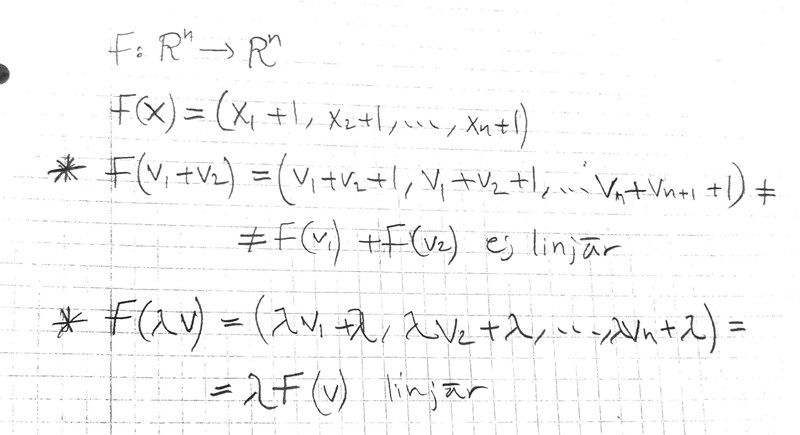 F: Rⁿ → Rⁿ
F(x) = (x₁+1, x₂+1, ..., xₙ+1)
* F(v₁+v₂) = (v₁+v₂+1, v₁+v₂+1, ... vₙ+vₙ₊₁+1) ≠
≠ F(v₁) + F(v₂) ej linjär
* F(λv) = (λv₁+λ, λv₂+λ, ..., λvₙ+λ) =
= λF(v) linjär